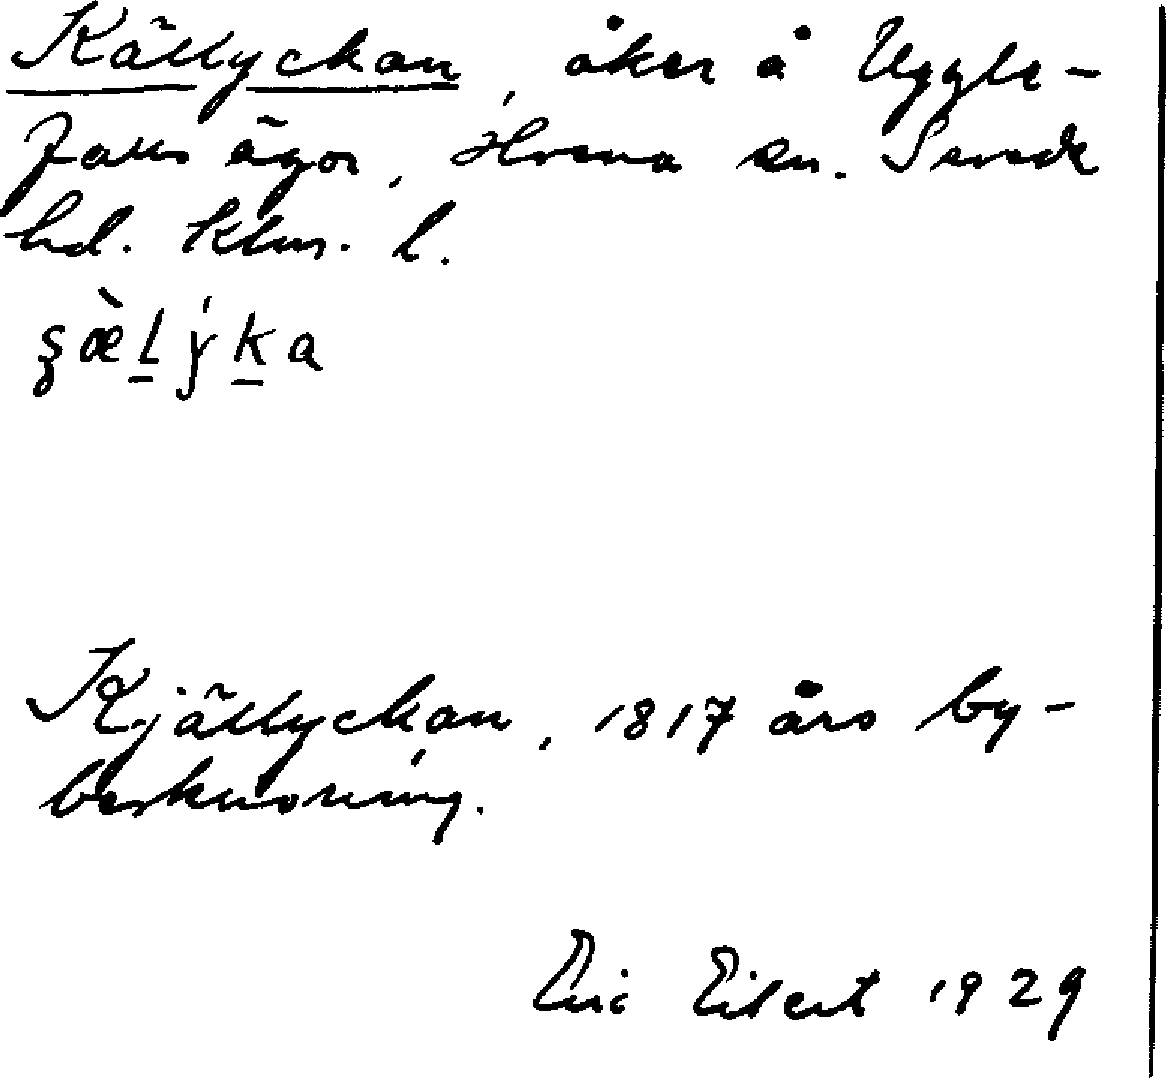 Källyckan, åker å Uggle-
falls ägor, Hvena sn. Sevede
hd. Klmr. l.
ȿæ̀l̲ýk̲a
Kjällyckan, 1817 års by-
beskrivning.
Eric Eilert 1929